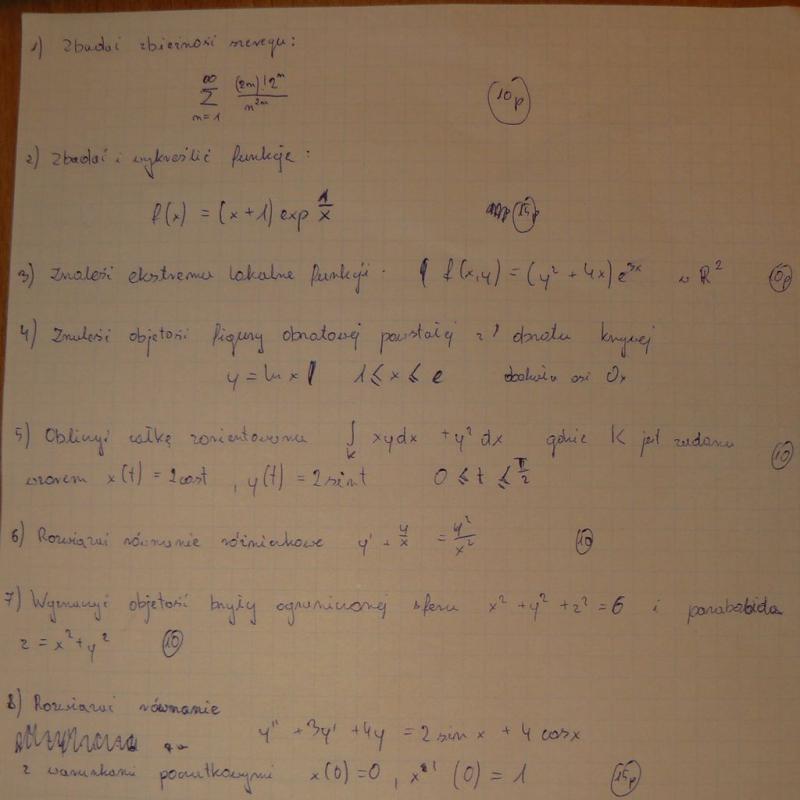 1) Zbadać zbieżność szeregu:
∞ ∑ n=1 (2n)! 2^n / n^{2n} 10p
2) Zbadać i wykreślić funkcję:
f(x) = (x+1) exp 1/x 15p
3) Znaleść ekstrema lokalne funkcji. f(x,y) = (y² + 4x) e^{3x} w R² 10p
4) Znaleść objętość figury obrotowej powstałej z obrotu krzywej
y = ln x 1 ≤ x ≤ e dookoła osi Ox
5) Obliczyć całkę zorientowaną ∫_K xy dx + y² dx gdzie K jest zadana
wzorem x(t) = 2cost , y(t) = 2sint 0 ≤ t ≤ π/2 10
6) Rozwiązać równanie różniczkowe y' + y/x = y²/x² 10
7) Wyznaczyć objętość bryły ograniczonej sferą x² + y² + z² = 6 i paraboloida
z = x² + y² 10
8) Rozwiązać równanie
y'' + 3y' + 4y = 2 sin x + 4 cosx
z warunkami początkowymi x(0) = 0 , x'(0) = 1 15p